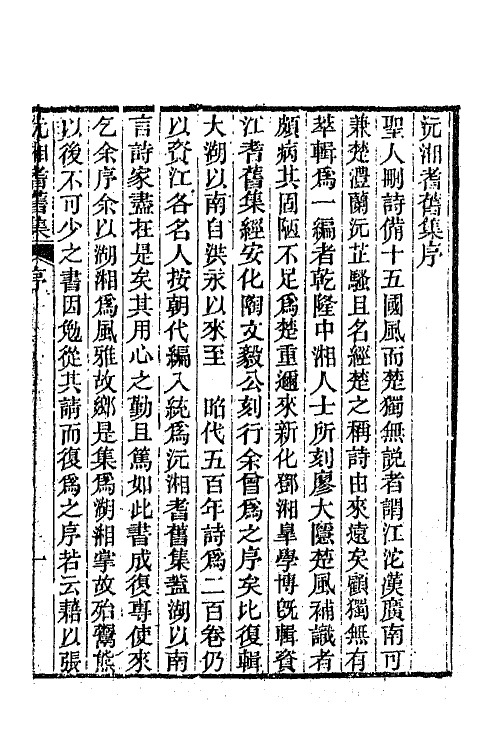 沅湘耆舊集序
聖人刪詩備十五國風而楚獨無説者謂江沱漢廣南可
兼楚澧蘭沅芷騷且名經楚之稱詩由來遠矣顧獨無有
萃輯爲一編者乾隆中湘人士所刻廖大隱楚風補識者
頗病其固陋不足爲楚重邇來新化鄧湘臯學博旣輯資
江耆舊集經安化陶文毅公刻行余曾爲之序矣比復輯
大湖以南自洪永以來至 昭代五百年詩爲二百卷仍
以資江各名人按朝代編入統爲沅湘耆舊集蓋湖以南
言詩家盡在是矣其用心之勤且篤如此書成復專使來
乞余序余以湖湘爲風雅故鄉是集爲湖湘掌故殆鬻熊
以後不可少之書因勉從其請而復爲之序若云藉以張
沅湘耆舊集 序 一